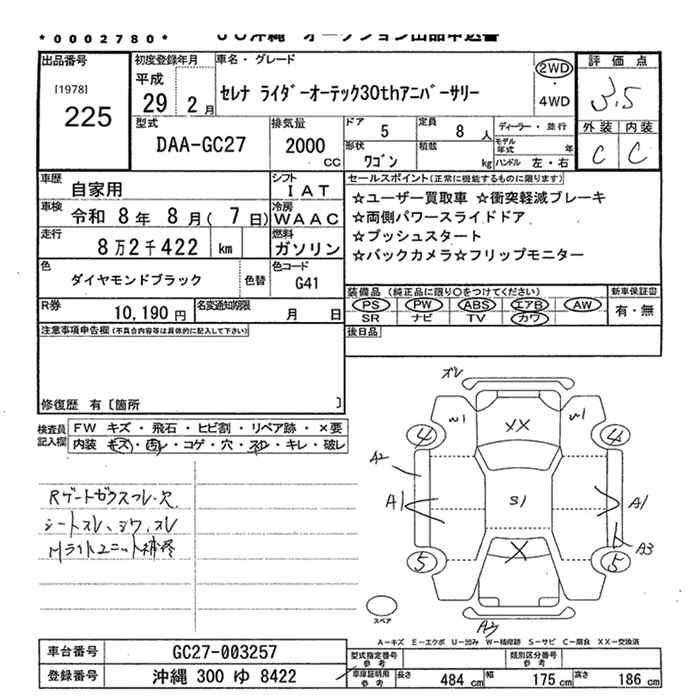 *0002780* JU沖縄 オークション出品申込書
出品番号 初度登録年月 車名・グレード 評価点
[1978] 平成 2WD 3.5
225 29 2月 セレナ ライダーオーテック30thアニバーサリー ・4WD
型式 排気量 ドア 5 定員 8人 ディーラー・並行 外装 内装
DAA-GC27 2000 CC 形状 ワゴン 積載 kg モデル年式 年 C C
ハンドル 左・右
車歴 自家用 シフト IAT セールスポイント(正常に機能するものに限ります)
車検 令和 8年 8月( 7日) 冷房 WAAC ☆ユーザー買取車 ☆衝突軽減ブレーキ
☆両側パワースライドドア
走行 8万2千422 km 燃料 ガソリン ☆プッシュスタート
☆バックカメラ☆フリップモニター
色 ダイヤモンドブラック 色替 色コード G41
装備品(純正品に限り○をつけてください) 新車保証書
R券 10,190円 名変通知期限 月 日 PS PW ABS エアB AW 有・無
SR ナビ TV カワ
注意事項申告欄(不具合内容等は具体的に記入して下さい) 後日品
修復歴 有〔箇所 〕
検査員記入欄 FW キズ・飛石・ヒビ割・リペア跡・×要
内装 キズ・汚レ・コゲ・穴・スレ・キレ・破レ
ズレ
W1 XX W1
4 4
A2
A1 S1 A1
A3
5 X 5
A2
シートスレ、シワ、スレ
スペア
A―キズ E―エクボ U―凹み W―補修跡 S―サビ C―腐食 XX―交換済
車台番号 GC27-003257 型式指定番号 参考 類別区分番号 参考
登録番号 沖縄 300 ゆ 8422 車庫証明用 参考 長さ 484 cm 幅 175 cm 高さ 186 cm